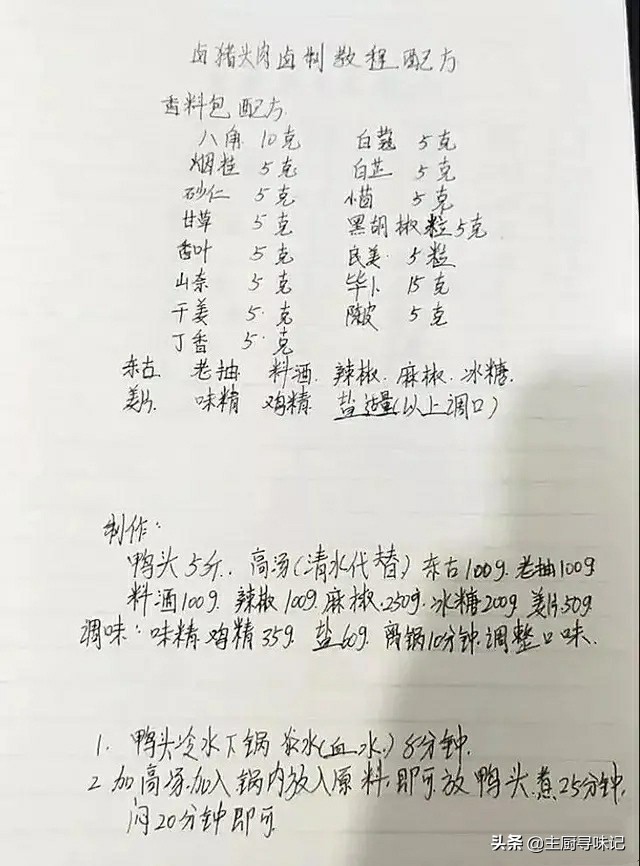 卤猪头肉卤制教程配方
香料包配方
八角 10克 白蔻 5克
烟桂 5克 白芷 5克
砂仁 5克 小茴 5克
甘草 5克 黑胡椒粒5克
香叶 5克 良美 5粒
山奈 5克 毕卜 15克
干姜 5克 陈皮 5克
丁香 5克
东古 老抽 料酒 辣椒 麻椒 冰糖
姜片 味精 鸡精 盐适量(以上调口)
制作:
鸭头5斤. 高汤(清水代替) 东古100g 老抽100g
料酒100g 辣椒100g 麻椒250g 冰糖200g 姜片50g
调味: 味精 鸡精35g 盐60g 离锅10分钟调整口味.
1. 鸭头冷水下锅 (血水) 8分钟.
2 加高汤加入锅内放入原料,即可放鸭头煮25分钟,
闷20分钟即可
头条 @主厨寻味记